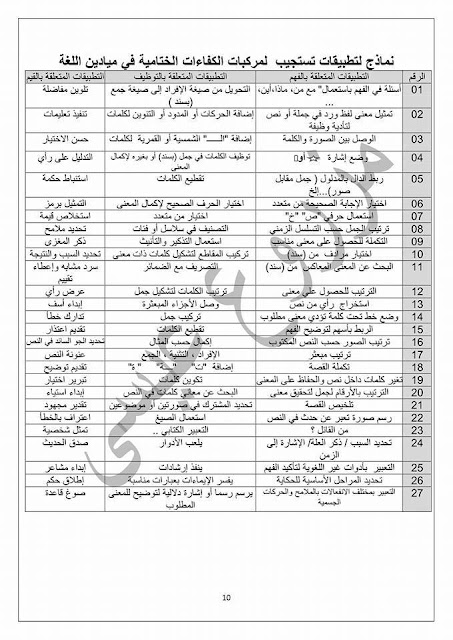 نماذج لتطبيقات تستجيب لمركبات الكفاءات الختامية في ميادين اللغة
الرقم التطبيقات المتعلقة بالفهم التطبيقات المتعلقة بالتوظيف التطبيقات المتعلقة بالقيم
01 أسئلة في الفهم باستعمال" مع من، ماذا،أين، ... التحويل من صيغة الإفراد إلى صيغة جمع (بسند ) تلوين مفاضلة
02 تمثيل معنى لفظ ورد في جملة أو نص لتأدية وظيفة إضافة الحركات أو المدود أو التنوين لكلمات تنفيذ تعليمات
03 الوصل بين الصورة والكلمة إضافة "الـــــ" الشمسية أو القمرية لكلمات حسن الاختيار
04 وضع إشارة أو توظيف الكلمات في جمل (بسند) أو بغيره لإكمال المعنى التدليل على رأي
05 ربط الدال بالمدلول ( جمل مقابل صور)...إلخ تقطيع الكلمات استنباط حكمة
06 اختيار الإجابة الصحيحة من متعدد اختيار الحرف الصحيح لإكمال المعنى التمثيل برمز
07 استعمال حرفي "ص" "خ" اختيار من متعدد استخلاص قيمة
08 ترتيب الجمل حسب التسلسل الزمني التصنيف في سلاسل أو فئات تحديد ملامح
09 التكملة للحصول على معنى مناسب استعمال التذكير والتأنيث ذكر المغزى
10 اختيار مرادف من (سند) تركيب المقاطع لتشكيل كلمات ذات معنى تحديد السبب والنتيجة
11 البحث عن المعنى المعاكس من (سند) التصريف مع الضمائر سرد مشابه وإعطاء تقييم
12 الترتيب للحصول على معنى ترتيب الكلمات لتشكيل جمل عرض رأي
13 استخراج رأي من نص وصل الأجزاء المبعثرة إبداء أسف
14 وضع خط تحت كلمة تؤدي معنى مطلوب تركيب جمل تدارك خطأ
15 الربط بأسهم لتوضيح الفهم تقطيع الكلمات تقديم اعتذار
16 ترتيب الصور حسب النص المكتوب إكمال حسب المثال تحديد الجو السائد في النص
17 ترتيب مبعثر الإفراد ، التثنية ، الجمع عنونة النص
18 تكملة القصة إضافة "ت" "ـــة" " ة" تقديم توضيح
19 تغير كلمات داخل نص والحفاظ على المعنى تكوين كلمات تبرير اختيار
20 الترتيب بالأرقام لجمل لتحقيق معنى البحث عن معاني كلمات في النص إبداء استياء
21 تلخيص القصة تحديد المشترك في صورتين أو موضوعين تقدير مجهود
22 رسم صورة تعبر عن حدث في النص استعمال الصيغ اعتراف بالخطأ
23 من القائل ؟ التعبير الكتابي .. تمثل شخصية
24 تحديد السبب / ذكر العلة/ الإشارة إلى الزمن يلعب الأدوار صدق الحديث
25 التعبير بأدوات غير اللغوية لتأكيد الفهم ينفذ إرشادات إبداء مشاعر
26 تحديد المراحل الأساسية للحكاية يفسر الإيماءات بعبارات مناسبة إطلاق حكم
27 التعبير بمختلف الانفعالات بالملامح والحركات الجسمية يرسم رسما أو إشارة دلالية لتوضيح للمعنى المطلوب صوغ قاعدة
10